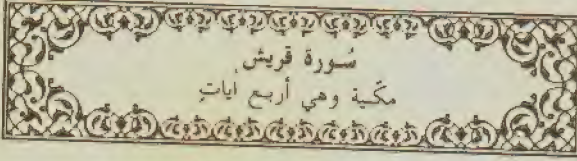 سُورة قريش
مكّية وهي أربع أيات